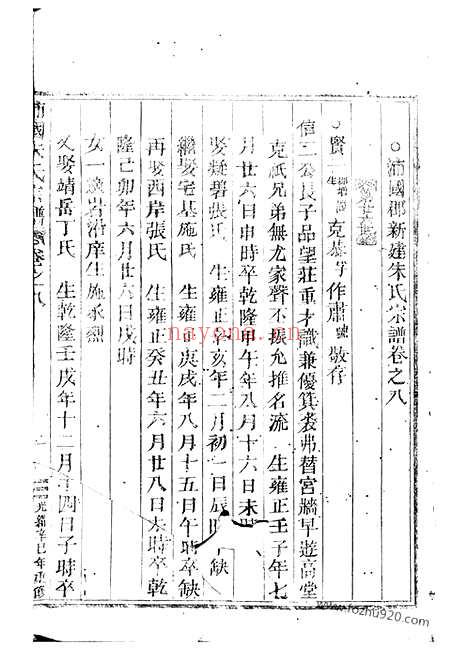 ○沛國郡新建朱氏宗譜卷之八
○賢 郡增廣生 克恭字作肅號敬存
信二公長子品望莊重才識兼優箕裘弗替宮牆早遊高堂
克祇兄弟無尤家聲不振允推名流 生雍正壬子年七
月廿六日申時卒乾隆甲午年八月十六日未時
娶凝碧張氏 生雍正辛亥年二月初一日辰時 缺
繼娶宅基施氏 生雍正庚戌年八月十五日午時卒缺
再娶西岸張氏 生雍正癸丑年六月廿八日未時卒乾
隆己卯年六月廿六日戌時
女一 適岩沿庠生施承烈
又娶靖岳丁氏 生乾隆壬戌年十二月十四日子時卒
沛國朱氏宗譜 卷之八 一 光緒辛巳年重修
nayona.cn
www.fozhu920.com